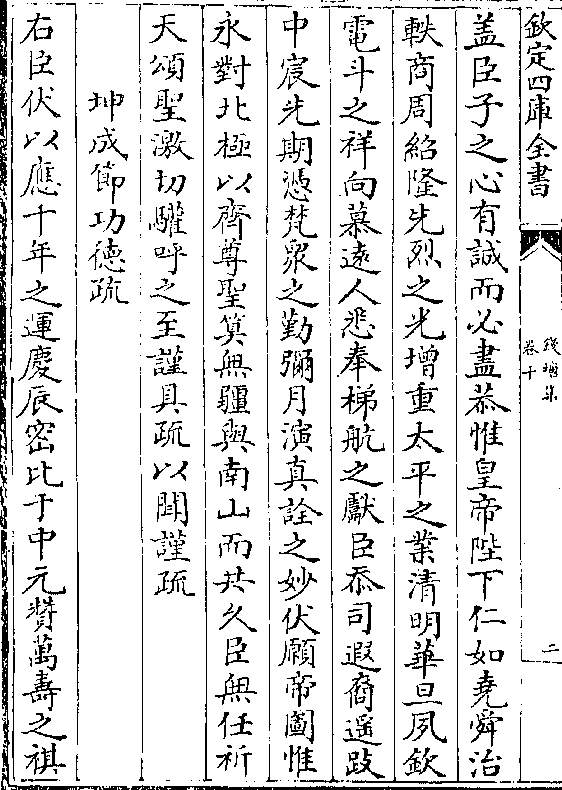 欽定四庫全書
錢塘集
卷十
二
盖臣子之心有誠而必盡恭惟皇帝陛下仁如堯舜治
軼商周紹隆先烈之光增重太平之業清明華旦夙欽
電斗之祥向慕遠人悉奉梯航之獻臣忝司遐裔遥跂
中宸先期憑梵衆之勤彌月演真詮之妙伏願帝圖惟
永對北極以齊尊聖筭無疆與南山而共久臣無任祈
天頌聖激切驩呼之至謹具疏以聞謹疏
坤成節功徳疏
右臣伏以應千年之運慶辰密比于中元贊萬壽之祺